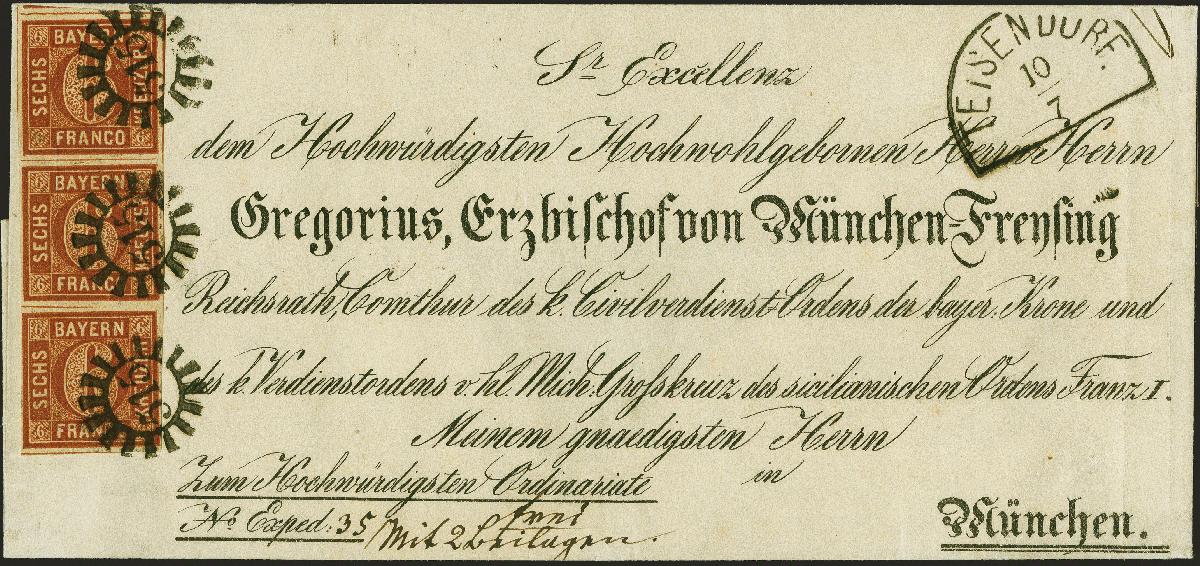 BAYERN
SECHS
FRANCO
BAYERN
SECHS
FRANCO
BAYERN
SECHS
FRANCO
TEISENDORF.
10/7
Sr. Excellenz
dem Hochwürdigsten Hochwohlgebornen Herrn Herrn
Gregorius, Erzbischof von München-Freysing
Reichsrath, Comthur des k. Civilverdienst-Ordens der bayer. Krone und
des k. Verdienstordens v. hl. Mich. Grosskreuz des sicilianischen Ordens Franz I.
Meinem gnaedigsten Herrn
in
Zum Hochwürdigsten Ordinariate
München.
No. Exped: 35
frei
Mit 2 Beilagen.